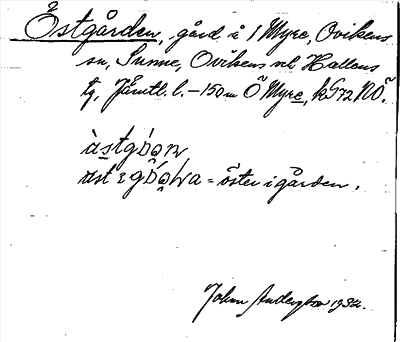 Östgården, gård i 1 Myre, Ovikens
sn, Sunne, Ovikens och Hallens
tg, Jämtl. l. – 150 m Ö Myre, kS72 NÖ.
àstgo̗o̭n
ast ɩ go̗o̭na = öster i gården.
John Anderzhon 1932.